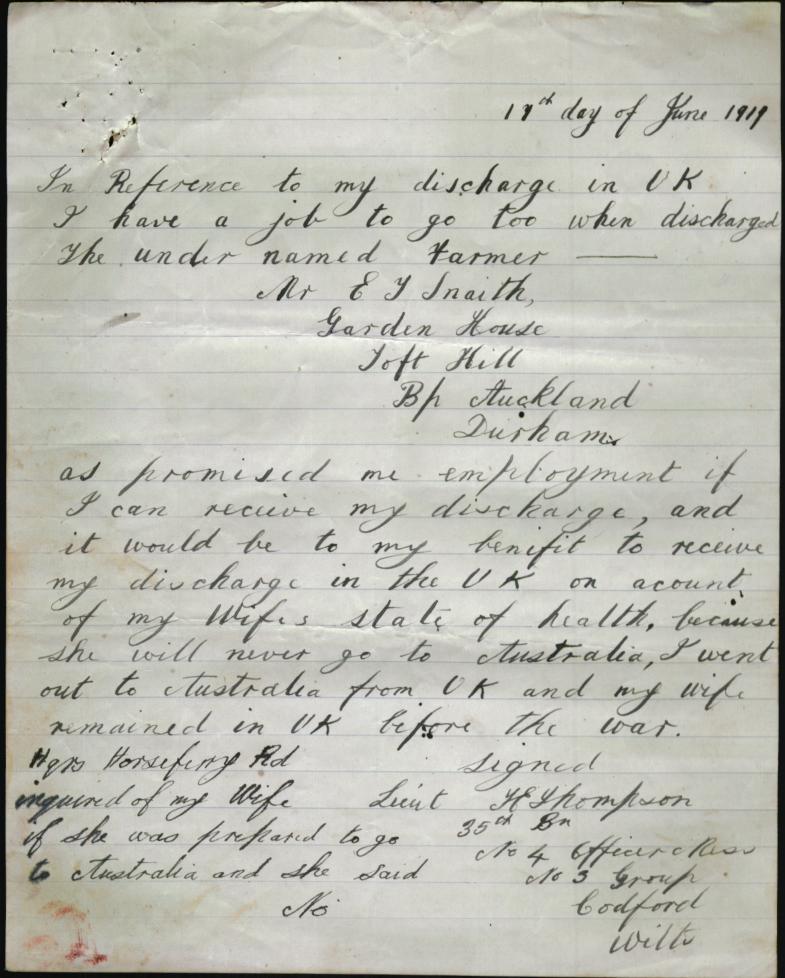 17th day of June 1919
In Reference to my discharge in UK
I have a job to go too when discharged
The under named Farmer —
Mr E T Snaith,
Garden House
Toft Hill
Bp Auckland
Durham.
as promised me employment if
I can receive my discharge, and
it would be to my benifit to receive
my discharge in the UK on acount
of my Wifes state of health, because
she will never go to Australia, I went
out to Australia from UK and my wife
remained in UK before the war.
Hqrs Horseferry Rd
inquired of my Wife
if she was prepared to go
to Australia and she said
No
signed
Lieut H Thompson
35th Bn
No 4 Officers Mess
No 3 Group
Codford
Wilts